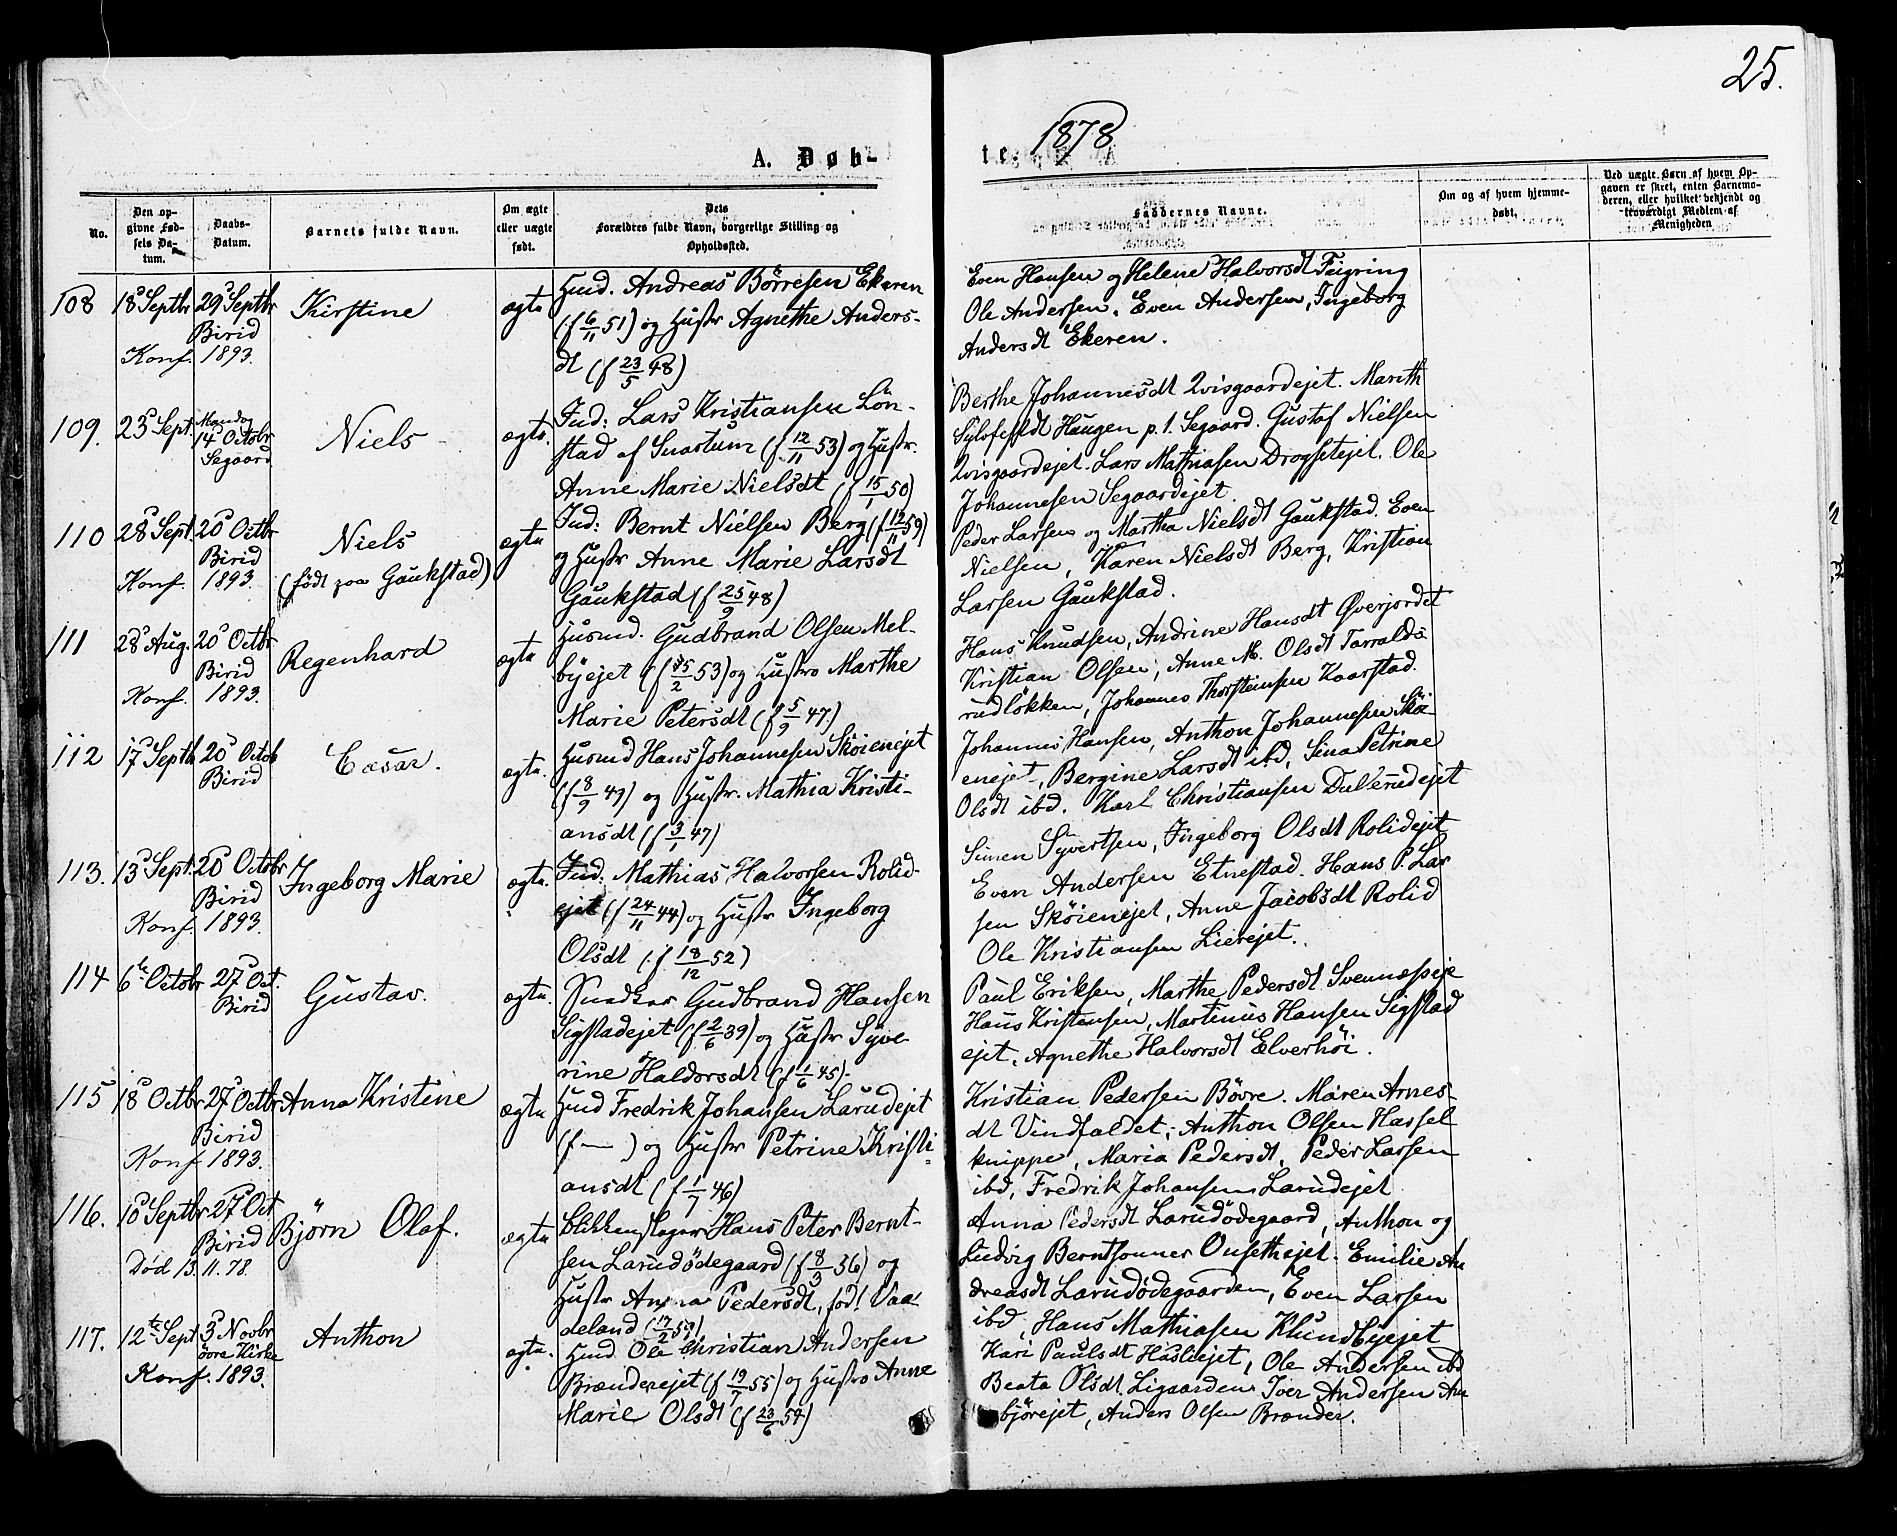 25.
1878
A. Døb-
te.
No.
Den opgivne Fødsels Datum.
Daabs-Datum.
Barnets fulde Navn.
Om ægte eller uægte født.
Dets Forældres fulde Navn, borgerlige Stilling og Opholdssted.
Faddernes Navne.
Om og af hvem hjemmedøbt.
Ved uægte Børn af hvem Opgaven er skeet, enten Barnemoderen, eller hvilket bekjendt og troværdigt Medlem af Menigheden
108 18 Septbr 29 Septbr Kirstine ægte Husd. Andreas Börresen Ekeren
Birid (f 6/11 51) og Hustr Agnethe Anders-
Konf. 1893. dt (f 23/5 48)
Even Hansen og Helene Halvorsdt Feigring
Ole Andersen, Even Andersen, Ingeborg
Andersdt Ekeren.
109. 23 Sept. Mandag Niels ægte. Ind: Lars Kristiansen Lön-
14 Octobr stad af Snartum (f. 12/11 53) og Hustr.
Segaard Anne Marie Nielsdt (f 15/1 50)
Berthe Johannesdt Qvisgaardejet. Marith
Haugen p. t. Segaard. Gustaf Nielsen
Qvisgaardejet. Lars Mathiasen Drogsetejet. Ole
Johannesen Segaardejet.
110 28 Sept. 20 Octbr Niels ægte Ind: Bernt Nielsen Berg (f 12/11 59)
Birid og Hustr Anne Marie Larsdt
Konf. 1893. (født paa Gaukstad) Gaukstad (f 25/9 48)
Peder Larsen og Martha Nielsdt Gaukstad. Even
Nielsen, Karen Nielsdt Berg, Kristian
Larsen Gaukstad.
111 28 Aug. 20 Octbr Regenhard ægte Husmd. Gudbrand Olsen Mel-
Birid byejet (f 25/2 53) og Hustro Marthe
Konf. 1893. Marie Petersdt (f 5/9 47.)
Hans Knudsen, Andrine Hansdt Øverjordet
Kristian Olsen, Anne M. Olsdt Tarralds-
rudlökken, Johannes Thorsteinsen Kaarstad.
112 17 Septb 20 Octob Cæsar. ægte. Husmd Hans Johannesen Sköienejet
Birid (f 8/9 49) og Hustr. Mathia Kristi-
ansdt (f 3/1 47)
Johannes Hansen, Anthon Johannesen Skö-
enejet, Bergine Larsdt ibd, Sina Petrine
Olsdt ibd. Karl Christiansen Dulserudejet
113. 13 Sept. 20 Octobr Ingeborg Marie ægte. Ind. Mathias Halvorsen Rolid-
Birid ejet (f 24/11 44) og Hustr Ingeborg
Konf. 1893. Olsdt (f 18/12 52)
Simen Syvertsen, Ingeborg Olsdt Rolidejet
Even Andersen Etnestad. Hans P. Lar
sen Sköienejet, Anne Jacobsdt Rolid
Ole Kristiansen Lierejet.
114 6te Octobr 27 Oct. Gustav. ægte. Snedker Gudbrand Hansen
Birid Sigstadejet (f 2/6 39) og Hustr Syve-
rine Haldorsdt (f 1/6 45).
Paul Eriksen, Marthe Pedersdt Svennæseje
Hans Kristensen, Martinus Hansen Sigstad
ejet, Agnethe Halvorsdt Elverhöi.
115 18 Octbr 27 Octbr Anna Kristine ægte Husd Fredrik Johansen Larudejet
Birid (f — ) og Hustr Petrine Kristi-
Konf 1893. ansdt (f 1/7 46)
Kristian Pedersen Bövre. Maren Arnes-
dt Vindfaldet, Anthon Olsen Hassel
knippe, Maria Pedersdt, Peder Larsen
ibd, Fredrik Johansen Larudejet
116. 10 Septbr 27 Oct Björn Olaf. ægte blikkenslager Hans Peter Bernt-
Birid sen Larudödegaard (f 8/3 36) og
Død 13.11.78. Hustr Anna Pedersdt, föd i Vaa-
deland (17/2 59)
Anna Pedersdt Larudödegaard, Anthon og
Ludvig Berntsonner Onsethejet. Emilie An
dreasdt Larudödegaarden, Even Larsen
ibd, Hans Mathiasen Klundbyejet
117. 12te Sept 3 Novbr Anthon ægte. Husd Ole Christian Andersen
övre Kirke Brænderejet (f 19/7 55) og Hustro Anne
Konf. 1893. Marie Olsdt (f 23/6 54)
Kari Paulsdt Haslieejet, Ole Andersen ibd
Beata Olsdt Ligaarden Iver Andersen An
björejet, Anders Olsen Brænder.